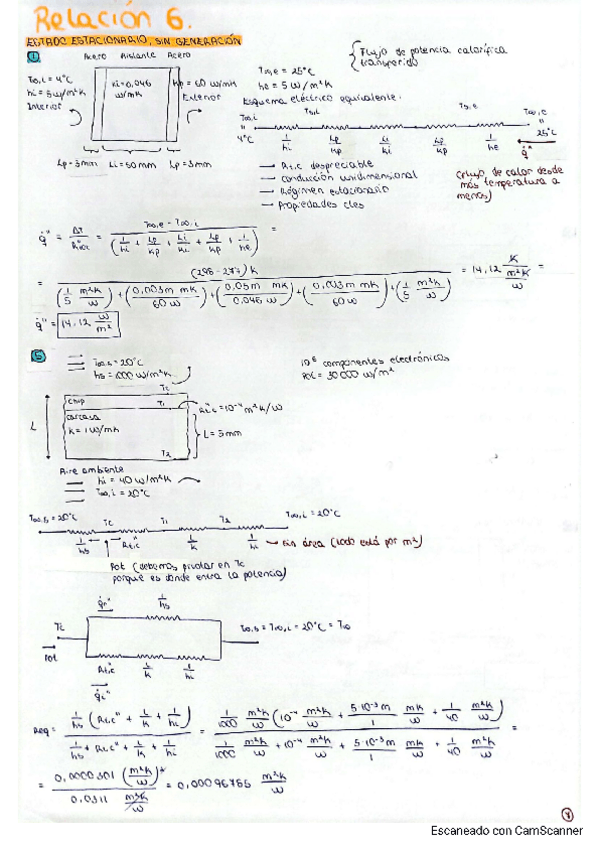 Relación 6.
ESTADO ESTACIONARIO, SIN GENERACIÓN
① Acero Aislante Acero
{Flujo de potencia calorífica transferido
T∞,i = 4ºC
hi = 5 w/m²K
Interior
ki = 0,046 w/mK
kp = 60 w/mK
Exterior
T∞,e = 25ºC
he = 5 w/m²K
Esquema eléctrico equivalente.
T∞,i Ts,i Ts,e T∞,e
4ºC 25ºC
1/hi Lp/kp Li/ki Lp/kp 1/he q̇"
Lp = 3mm Li = 50mm Lp = 3mm
— Rt,c despreciable
— Conducción unidimensional
— Régimen estacionario
— Propiedades ctes
(flujo de calor desde más temperatura a menos)
q̇" = ΔT/Rtot" = (T∞,e - T∞,i)/(1/hi + Lp/kp + Li/ki + Lp/kp + 1/he) =
= (298-277) K / ((1/5 m²K/w) + (0,003m mK/60 w) + (0,05m mK/0,046 w) + (0,003m mK/60w) + (1/5 m²K/w)) = 14,12 K/(m²K/w) =
q̇" = 14,12 w/m²
⑤ T∞,s = 20ºC
hs = 1000 w/m²K
Tc
10⁶ componentes electrónicos
Pot = 30000 w/m²
Chip
T1
Rt,c = 10⁻⁴ m²K/w
carcasa
K = 1 w/mK
L
L = 5mm
T2
Aire ambiente
hi = 40 w/m²K
T∞,i = 20ºC
T∞,s = 20ºC Tc T1 T2 T∞,i = 20ºC
1/hs Rt,c" L/k 1/hi → Sin área (todo está por m²)
Pot (debemos pivotar en Tc
porque es donde entra la potencia)
q̇s" 1/hs
Tc T∞,s = T∞,i = 20ºC = T∞
Pot
Rt,c L/k 1/hi
q̇i"
Req = 1/hs (Rt,c" + L/k + 1/hi) / (1/hs + Rt,c" + L/k + 1/hi) = 1/1000 m²K/w (10⁻⁴ m²K/w + 5·10⁻³m/1 mK/w + 1/40 m²K/w) / (1/1000 m²K/w + 10⁻⁴ m²K/w + 5·10⁻³m/1 mK/w + 1/40 m²K/w) =
= 0,0000301 (m²K/w)² / 0,0311 m²K/w = 0,00096785 m²K/w
Escaneado con CamScanner